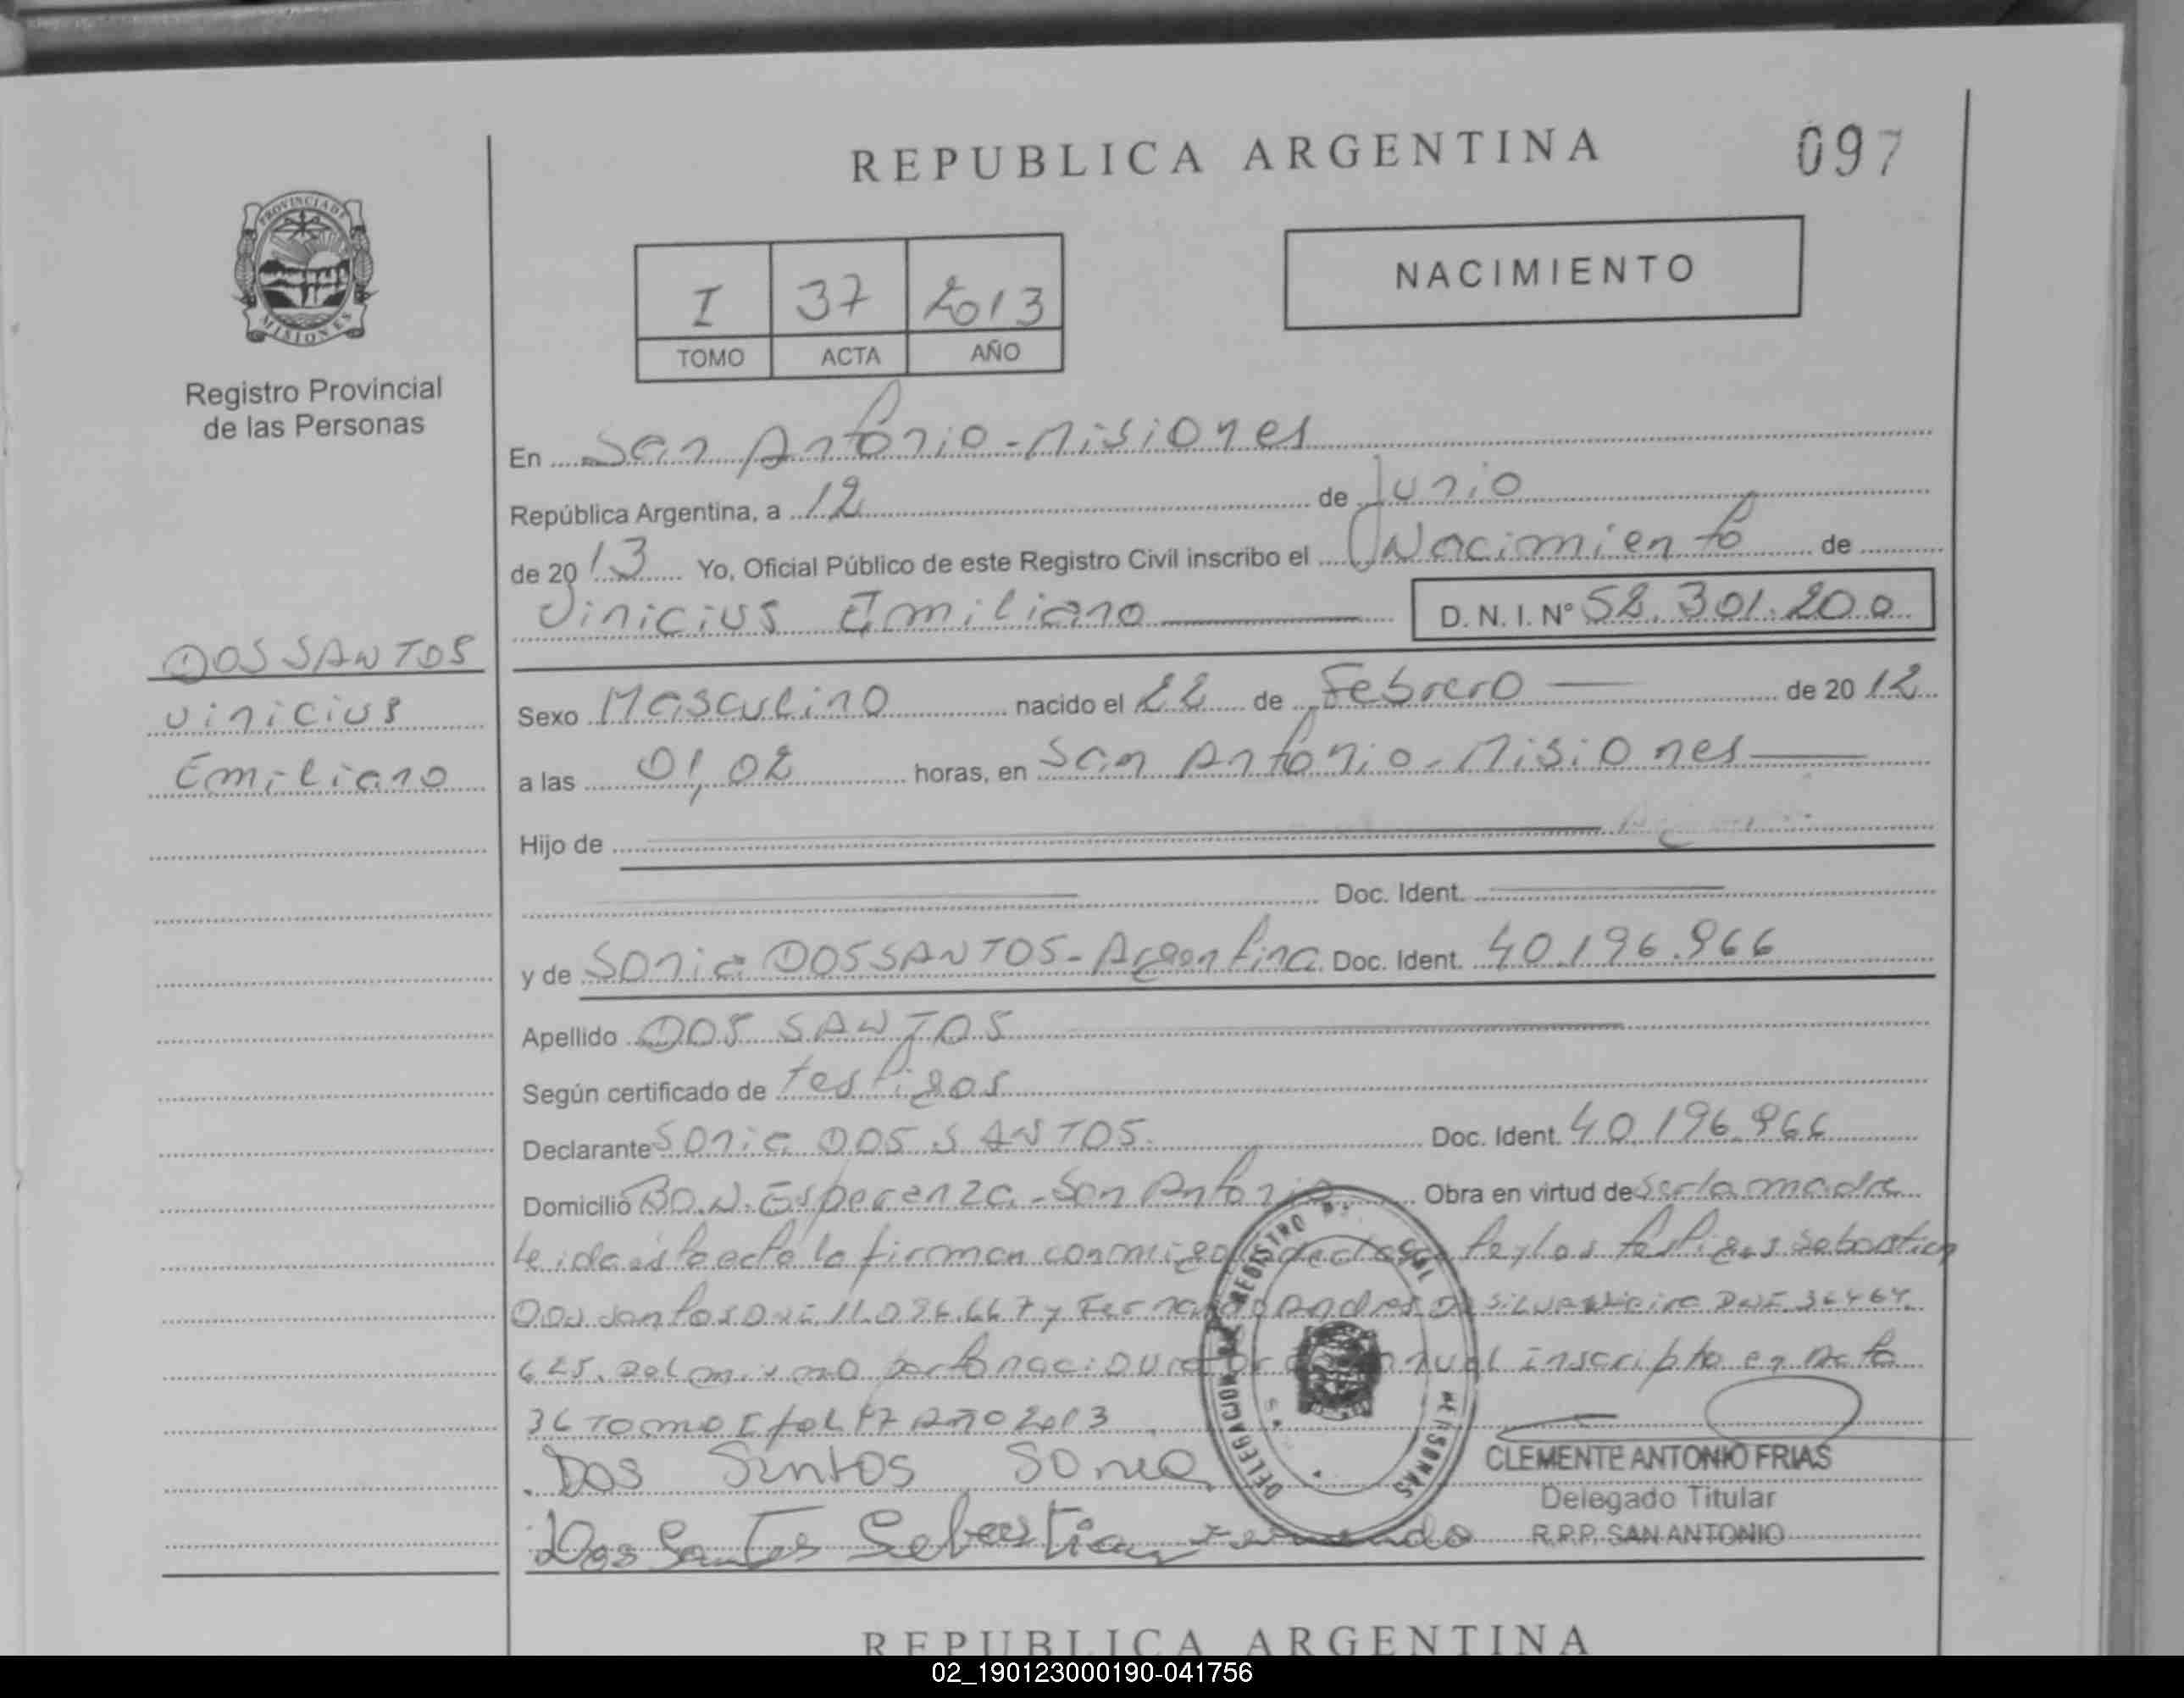 REPUBLICA ARGENTINA
097
PROVINCIA DE
MISIONES
Registro Provincial
de las Personas
I 37 2013
TOMO ACTA AÑO
NACIMIENTO
En San Antonio - Misiones
República Argentina, a 12 de Junio
de 2013 Yo, Oficial Público de este Registro Civil inscribo el Nacimiento de
Vinicius Emiliano D. N. I. Nº 52.301.200
DOS SANTOS
Vinicius
Emiliano
Sexo Masculino nacido el 22 de Febrero de 2012
a las 01,02 horas, en San Antonio - Misiones
Hijo de
Doc. Ident.
y de Sonia DOS SANTOS - Argentina Doc. Ident. 40.196.966
Apellido DOS SANTOS
Según certificado de testigos
Declarante Sonia DOS SANTOS Doc. Ident. 40.196.966
Domicilio Bo. N. Esperanza - San Antonio Obra en virtud de ser la madre
Leida esta acta la firman conmigo la declarante y los testigos Sebastian
Dos Santos DNI 11.096.667 y Fernando Andres Da Silva DNI 36464
625. Del mismo parto nacio inscripto en Acta
36 Tomo I fol 97 Año 2013
Dos Santos Sonia
Dos Santos Sebastian Fernando
DELEGACION REGISTRO PERSONAS
CLEMENTE ANTONIO FRIAS
Delegado Titular
R.P.P. SAN ANTONIO
REPUBLICA ARGENTINA
02_190123000190-041756